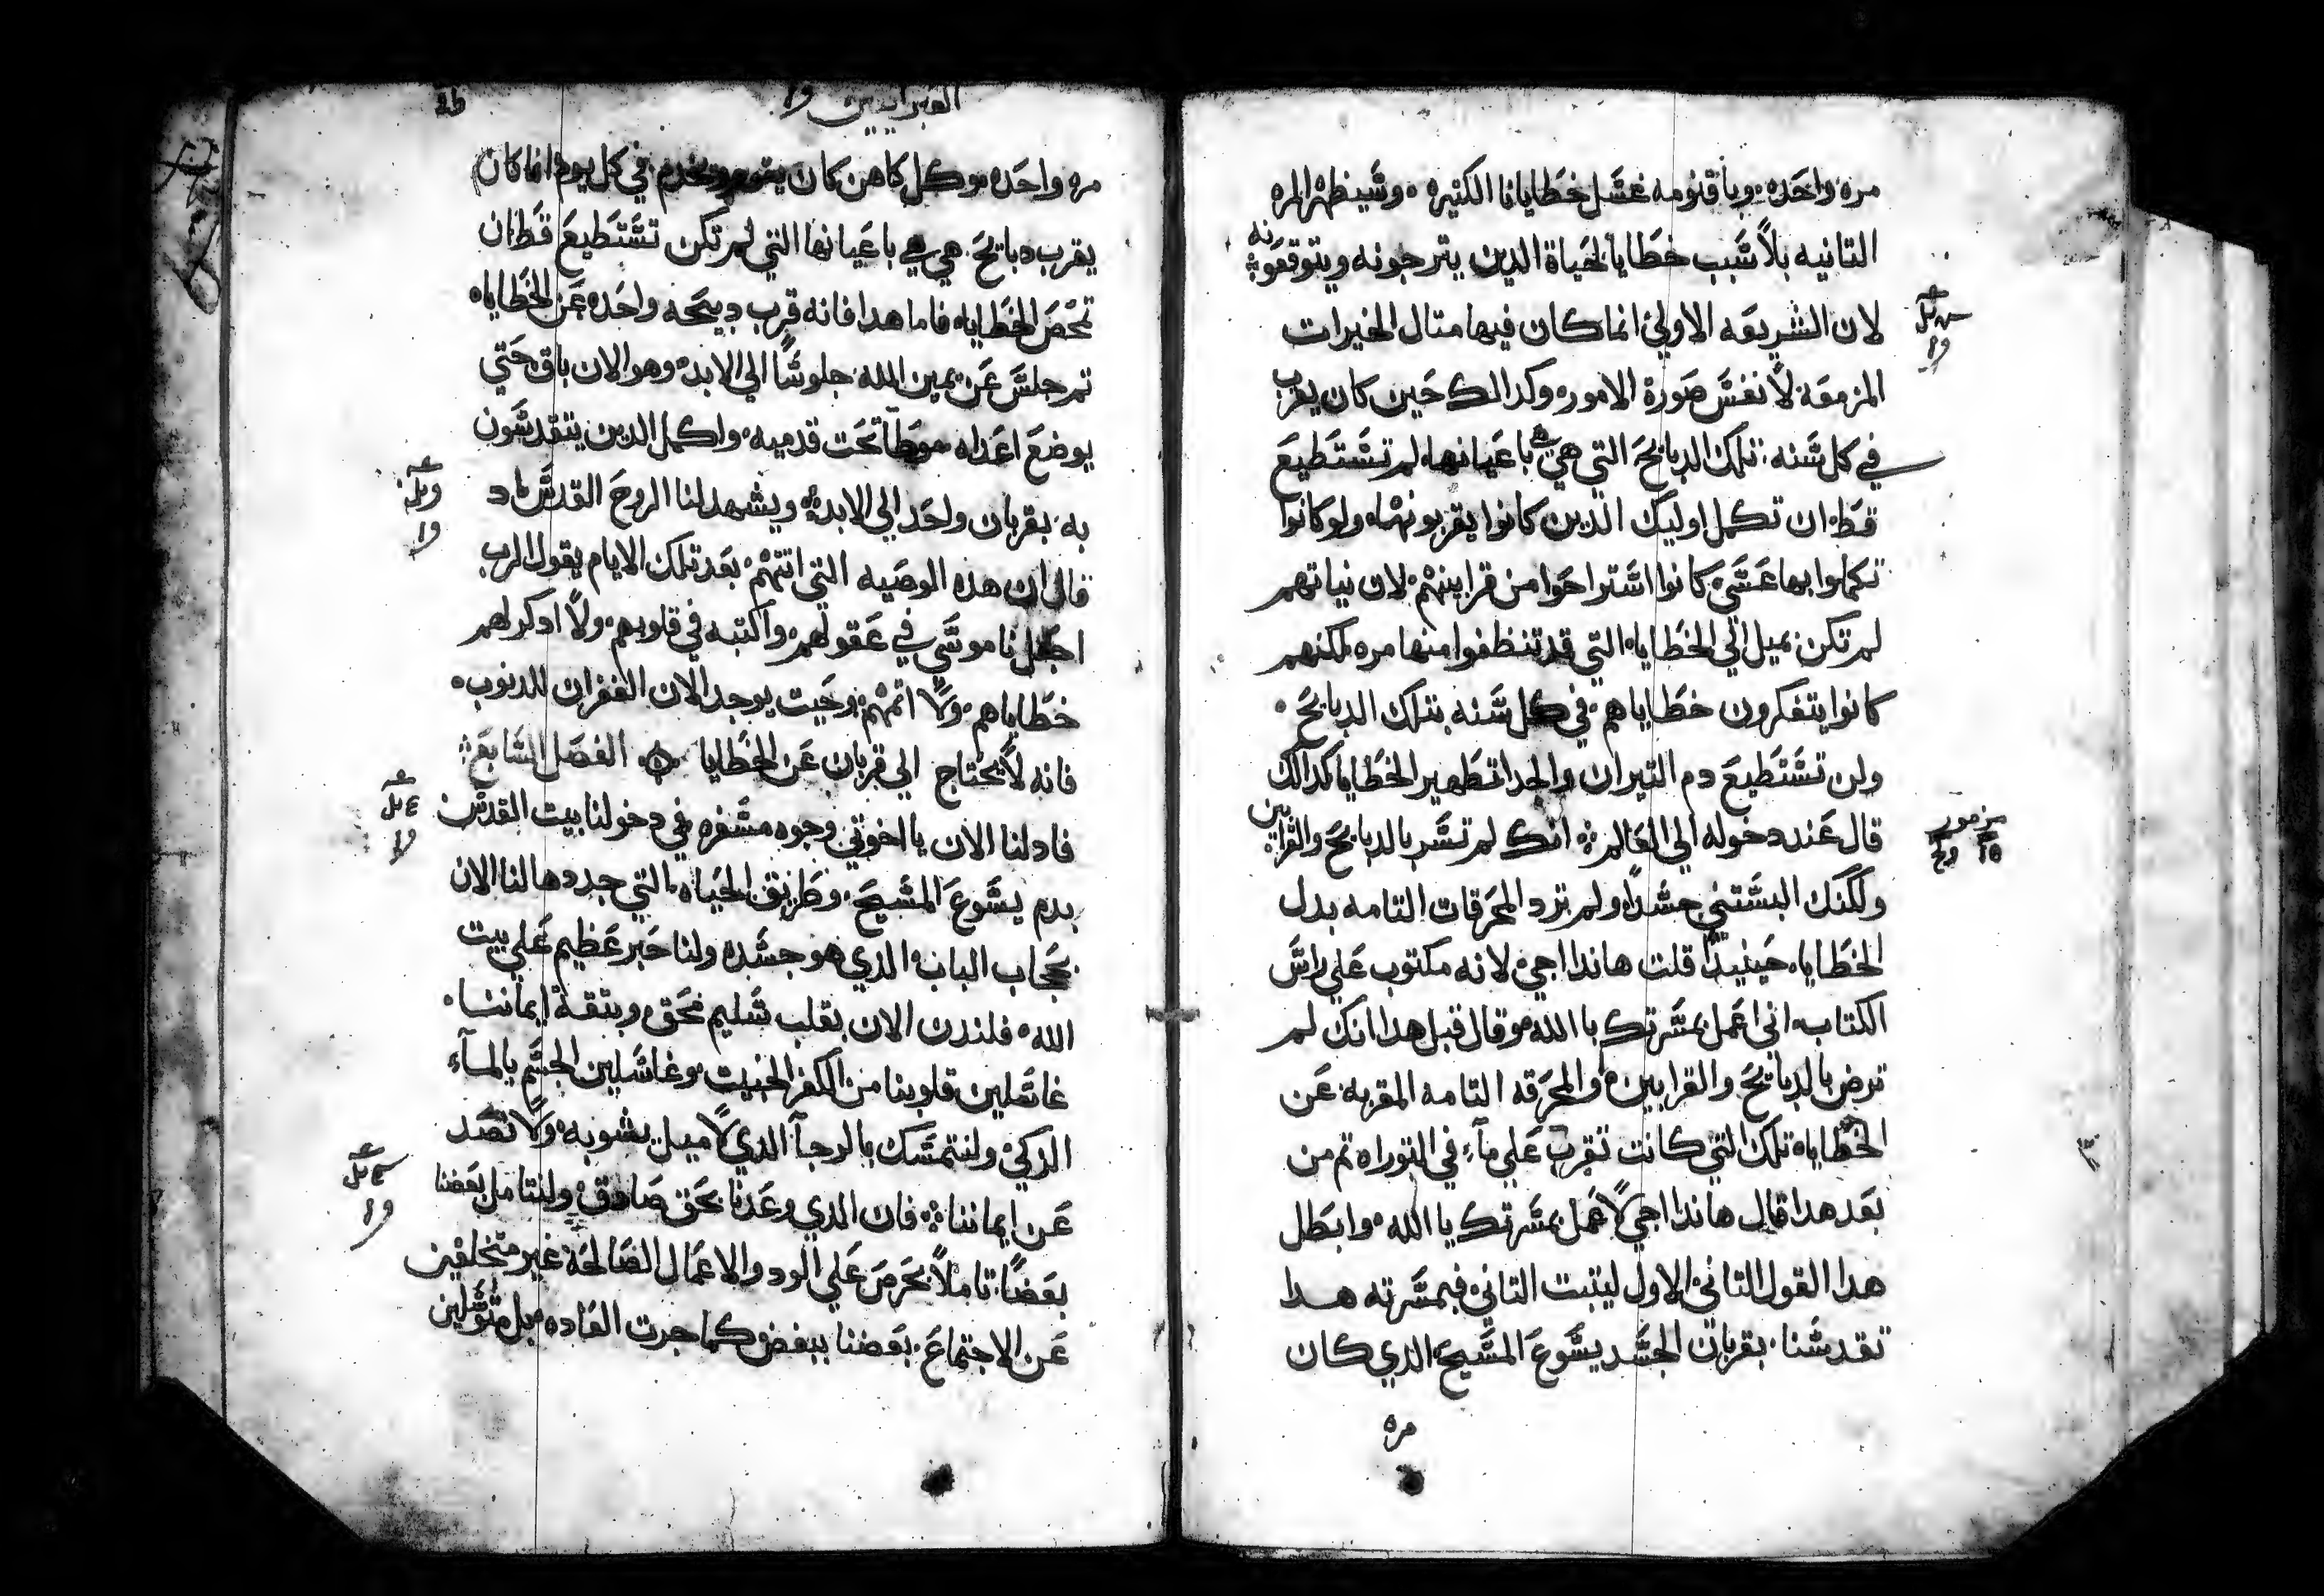 مره واحده وباقنومه غسل خطايانا الكتيره وسيظهر المره
التانيه بلا سبب خطايا لحياة الدين يترجونه ويتوقعونه
لان الشريعه الاولي انما كان فيها متال الخيرات
المزمعه لا نفس صورة الامور وكدالك حين كان يقرب
في كل سنه تلك الدبايح التي هي هي باعيانها لم تستطيع
قط ان تكمل اوليك الدين كانوا يقربونها ولو كانوا
تكملوا بها عسي كانوا استراحوا من قرابينهم لان نياتهم
لم تكن تميل الي الخطايا التي قد تنظفوا منها مره لكنهم
كانوا يتفكرون خطاياهم في كل سنه بتلك الدبايح
ولن تستطيع دم التيران والجدا تطهير الخطايا كدالك
قال عند دخوله الي العالم انك لم تسر بالدبايح والقرابين
ولكنك البستني جسدا ولم ترد المحرقات التامه بدل
الخطايا حينيدا قلت هاندا اجي لانه مكتوب علي راس
الكتاب اني اعمل بمسرتك يا الله وقال قبل هدا انك لم
ترض بالدبايح والقرابين والمحرقه التامه المقربه عن
الخطايا تلك التي كانت تقرب علي ماء في التوراه تم من
بعد هدا قال هاندا اجي لاعمل بمسرتك يا الله وابطل
هدا القول التاني الاول ليتبت التاني فبمسرته هدا
تقدسنا بقربان الجسد يسوع المسيح الدي كان
مره
مزمور
العبرانيين
مره واحده وكل كاهن كان يقوم ويخدم في كل يوم انما كان
يقرب دبايح هي هي باعيانها التي لم تكن تستطيع قط ان
تمحص الخطايا فاما هدا فانه قرب دبيحه واحده عن الخطايا
تم جلس عن يمين الله جلوسا الي الابد وهو الان باق حتي
يوضع اعداه موطا تحت قدميه واكمل الدين يتقدسون
به بقربان واحد الي الابد ويشهد لنا الروح القدس اد
قال ان هده الوصيه التي اتتهم بعد تلك الايام يقول الرب
اجعل ناموسي في عقولهم واكتبه في قلوبهم ولا ادكر لهم
خطاياهم ولا اتمهم وحيت يوجد الان الغفران للدنوب
فانه لا يحتاج الي قربان عن الخطايا الفصل السابع
فاد لنا الان يا اخوتي وجوه مسفره في دخولنا بيت القدس
بدم يسوع المسيح وطريق الحياه التي جددها لنا الان
بحجاب الباب الدي هو جسده ولنا حبر عظيم علي بيت
الله فلندن الان بقلب سليم محق وبتقة ايماننا
غاسلين قلوبنا من الكفر الخبيت وغاسلين الجسم بالماء
الدكي ولنتمسك بالرجا الدي لا ميل يشوبه ولا نصد
عن ايماننا فان الدي وعدنا بحق صادق ولنتامل بعضنا
بعضا تاملا بحرص علي الود والاعمال الصالحه غير متخلفين
عن الاجتماع بعضنا ببعض كما جرت العاده بل متوسلين